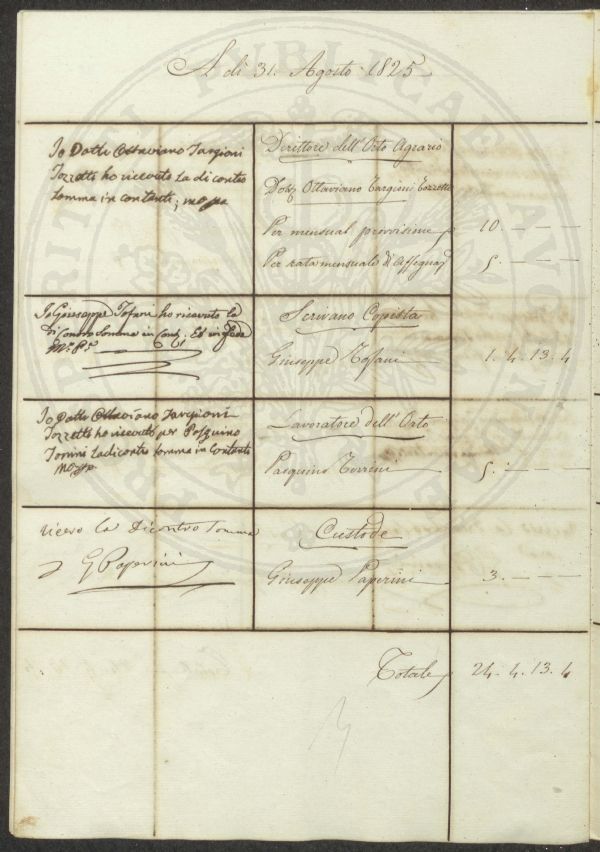 A dì 31. Agosto 1825
Io Dotte Ottaviano Targioni
Tozzetti ho ricevuto la di contro
somma in contanti; mo pa
Direttore dell'Orto Agrario
Dotr Ottaviano Targioni Tozzetti
Per mensual provvisione 10. — — —
Per rata mensuale di Assegnao 5. — — —
Io Giuseppe Tofani ho ricevuto la
Di Contro Somma in Conti. Ed in fede
Mo. Po.
Scrivano Copista
Giuseppe Tofani 1. 4. 13. 4
Io Dotte Ottaviano Targioni
Tozzetti ho ricevuto per Pasquino
Torrini la di contro somma in Contanti
mo pa
Lavoratore dell'Orto
Pasquino Torrini 5. — — —
ricevo la Dicontro Somma
G Paperini
Custode
Giuseppe Paperini 3. — — —
Totale 24. 4. 13. 4